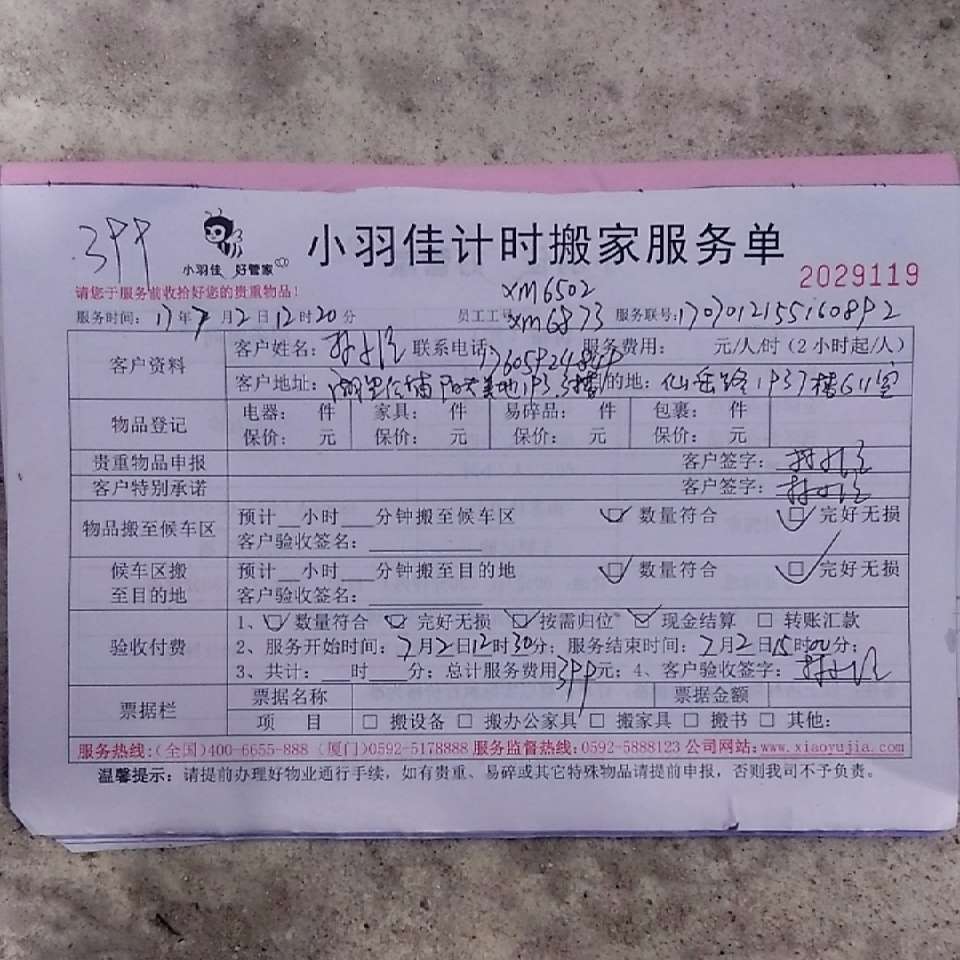 399
小羽佳 好管家
小羽佳计时搬家服务单
2029119
请您于服务前收拾好您的贵重物品！
XM6502
服务时间：17年7月2日12时20分 员工工号：XM6873 服务联号：1707012155160892
客户资料
客户姓名：林 联系电话 服务费用： 元/人/时（2小时起/人）
客户地址：湖里 目的地：仙岳路137楼611室
物品登记
电器： 件 家具： 件 易碎品： 件 包裹： 件
保价： 元 保价： 元 保价： 元 保价： 元
贵重物品申报 客户签字：
客户特别承诺 客户签字：
物品搬至候车区
预计__小时___分钟搬至候车区 数量符合 完好无损
客户验收签名：
候车区搬至目的地
预计__小时___分钟搬至目的地 数量符合 完好无损
客户验收签名：
验收付费
1、数量符合 完好无损 按需归位 现金结算 □ 转账汇款
2、服务开始时间：7月2日12时30分；服务结束时间：7月2日15时00分；
3、共计：___时___分；总计服务费用399元；4、客户验收签字：
票据栏
票据名称 票据金额
项 目 □ 搬设备 □ 搬办公家具 □ 搬家具 □ 搬书 □ 其他：
服务热线：（全国）400-6655-888（厦门）0592-5178888 服务监督热线：0592-5888123 公司网站：www.xiaoyujia.com
温馨提示：请提前办理好物业通行手续，如有贵重、易碎或其它特殊物品请提前申报，否则我司不予负责。